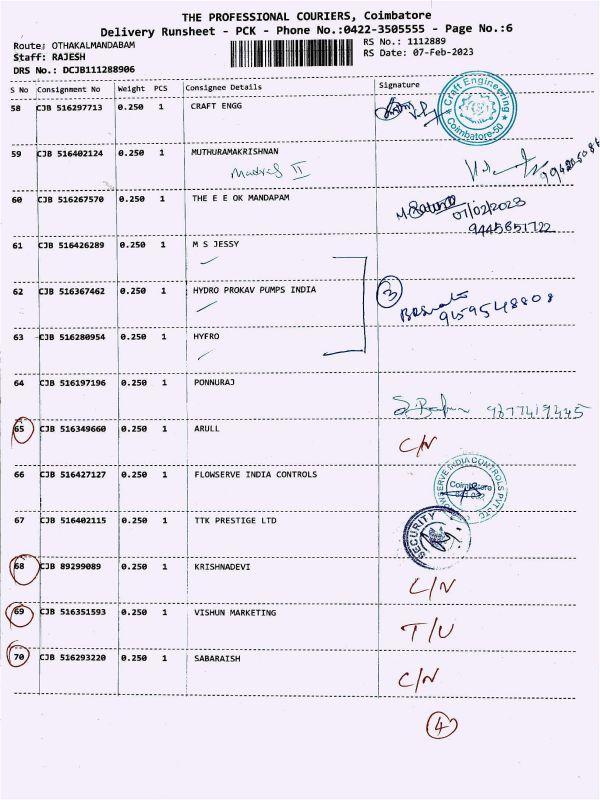 THE PROFESSIONAL COURIERS, Coimbatore
Delivery Runsheet - PCK - Phone No.:0422-3505555 - Page No.:6
Route: OTHAKALMANDABAM
RS No.: 1112889
Staff: RAJESH
RS Date: 07-Feb-2023
DRS No.: DCJB111288906
S No Consignment No Weight PCS Consignee Details Signature
58 CJB 516297713 0.250 1 CRAFT ENGG
Craft Engineering
Coimbatore-50
59 CJB 516402124 0.250 1 MUTHURAMAKRISHNAN
60 CJB 516267570 0.250 1 THE E E OK MANDAPAM
07/02/2023
9445651722
61 CJB 516426289 0.250 1 M S JESSY
62 CJB 516367462 0.250 1 HYDRO PROKAV PUMPS INDIA
3
9159548808
63 CJB 516280954 0.250 1 HYFRO
64 CJB 516197196 0.250 1 PONNURAJ
9877419445
65 CJB 516349660 0.250 1 ARULL
C/N
66 CJB 516427127 0.250 1 FLOWSERVE INDIA CONTROLS
Coimbatore
67 CJB 516402115 0.250 1 TTK PRESTIGE LTD
SECURITY
68 CJB 89299089 0.250 1 KRISHNADEVI
C/N
69 CJB 516351593 0.250 1 VISHUN MARKETING
T/U
70 CJB 516293220 0.250 1 SABARAISH
C/N
4